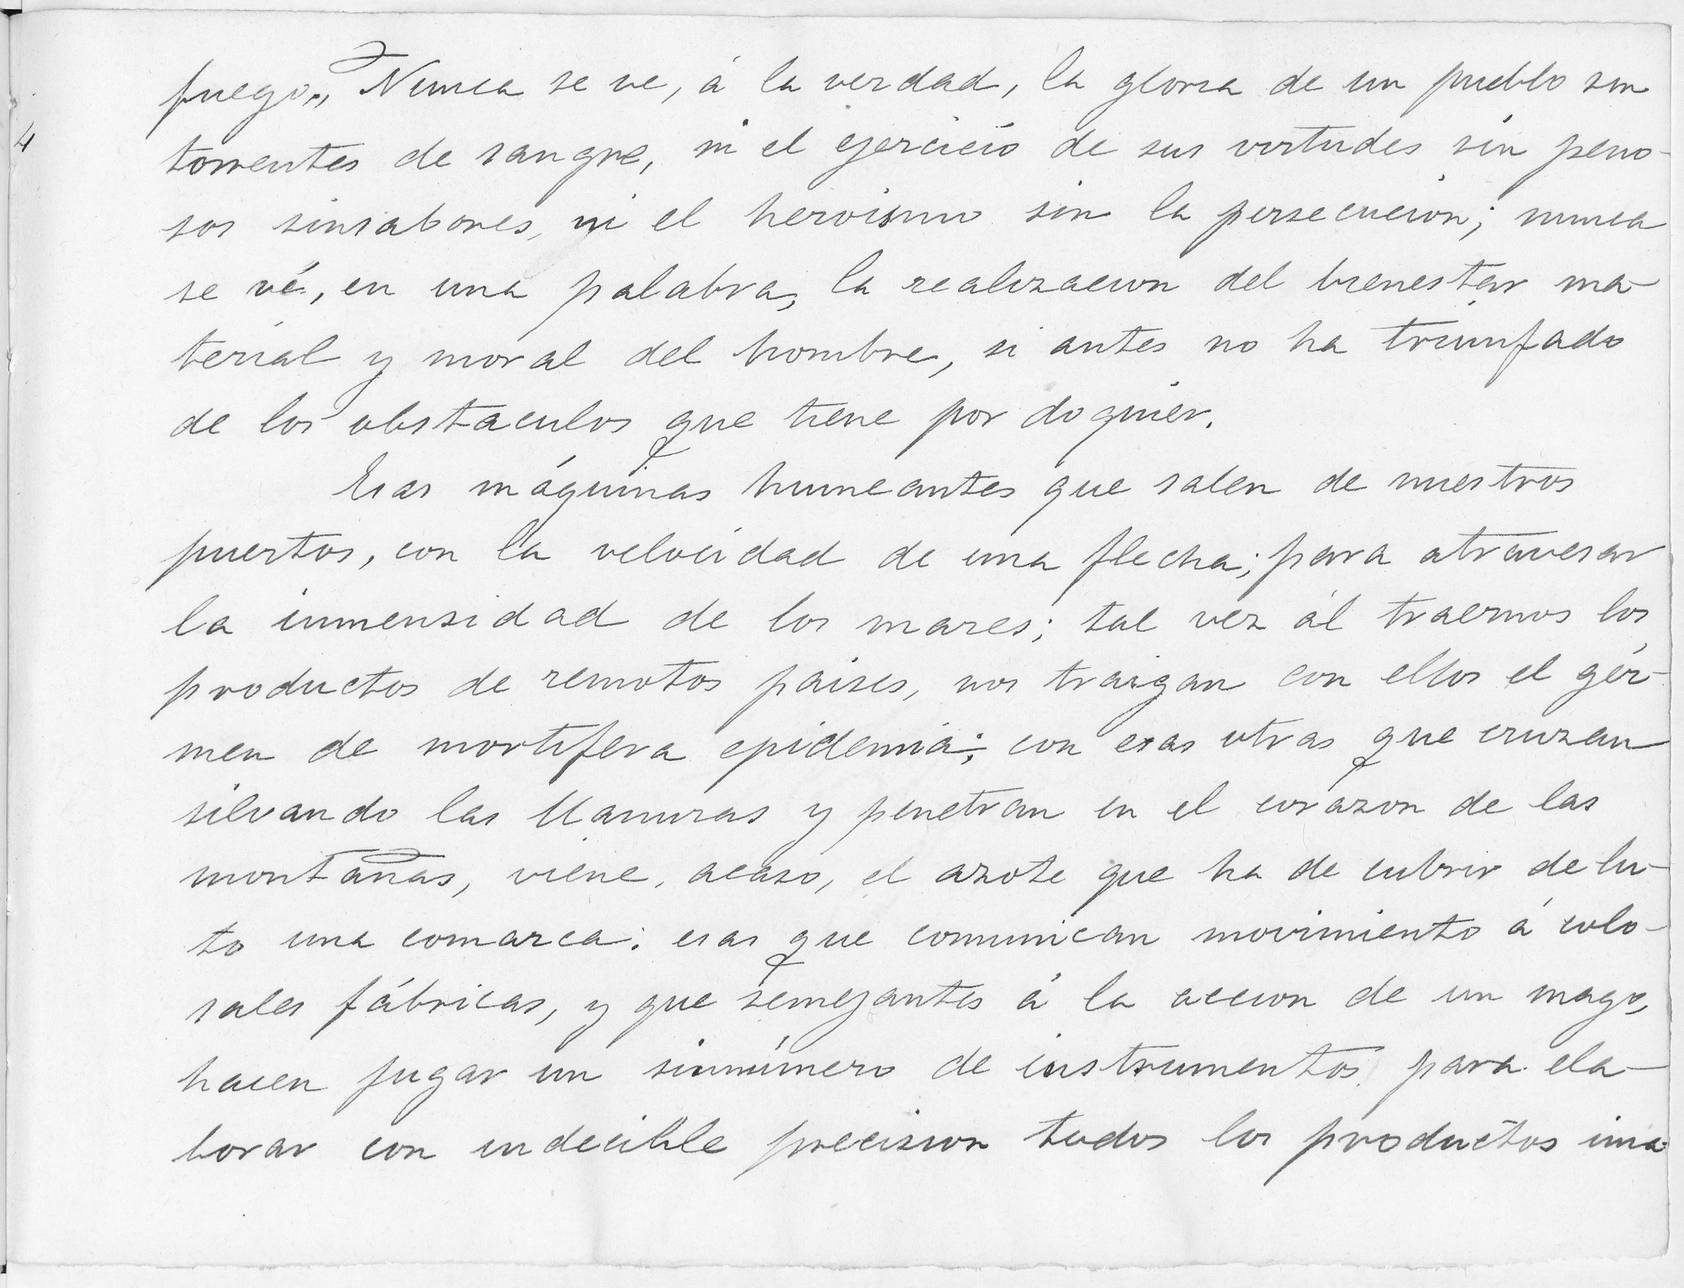 fuego.„ Nunca se ve, á la verdad, la gloria de un pueblo sin
4
torrentes de sangre, ni el ejercicio de sus virtudes sin peno-
sos sinsabores, ni el heroismo sin la persecucion; nunca
se vé, en una palabra, la realizacion del bienestar ma-
terial y moral del hombre, si antes no ha triunfado
de los obstaculos que tiene por doquier.
Esas máquinas humeantes que salen de nuestros
puertos, con la velocidad de una flecha; para atravesar
la inmensidad de los mares; tal vez al traernos los
productos de remotos paises, nos traigan con ellos el gér-
men de mortifera epidemia; con esas otras que cruzan
silvando las llanuras y penetran en el corazon de las
montañas, viene, acaso, el azote que ha de cubrir de lu-
to una comarca: esas que comunican movimiento á colo-
sales fábricas, y que semejantes á la accion de un mago,
hacen jugar un sinnúmero de instrumentos para ela-
borar con indecible precision todos los productos ima-